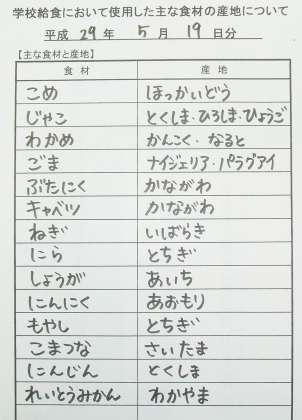 学校給食において使用した主な食材の産地について
平成 29 年 5 月 19 日分
【主な食材と産地】
食材 産地
こめ ほっかいどう
じゃこ とくしま・ひろしま・ひょうご
わかめ かんこく・なると
ごま ナイジェリア・パラグアイ
ぶたにく かながわ
キャベツ かながわ
ねぎ いばらき
にら とちぎ
しょうが あいち
にんにく あおもり
もやし とちぎ
こまつな さいたま
にんじん とくしま
れいとうみかん わかやま